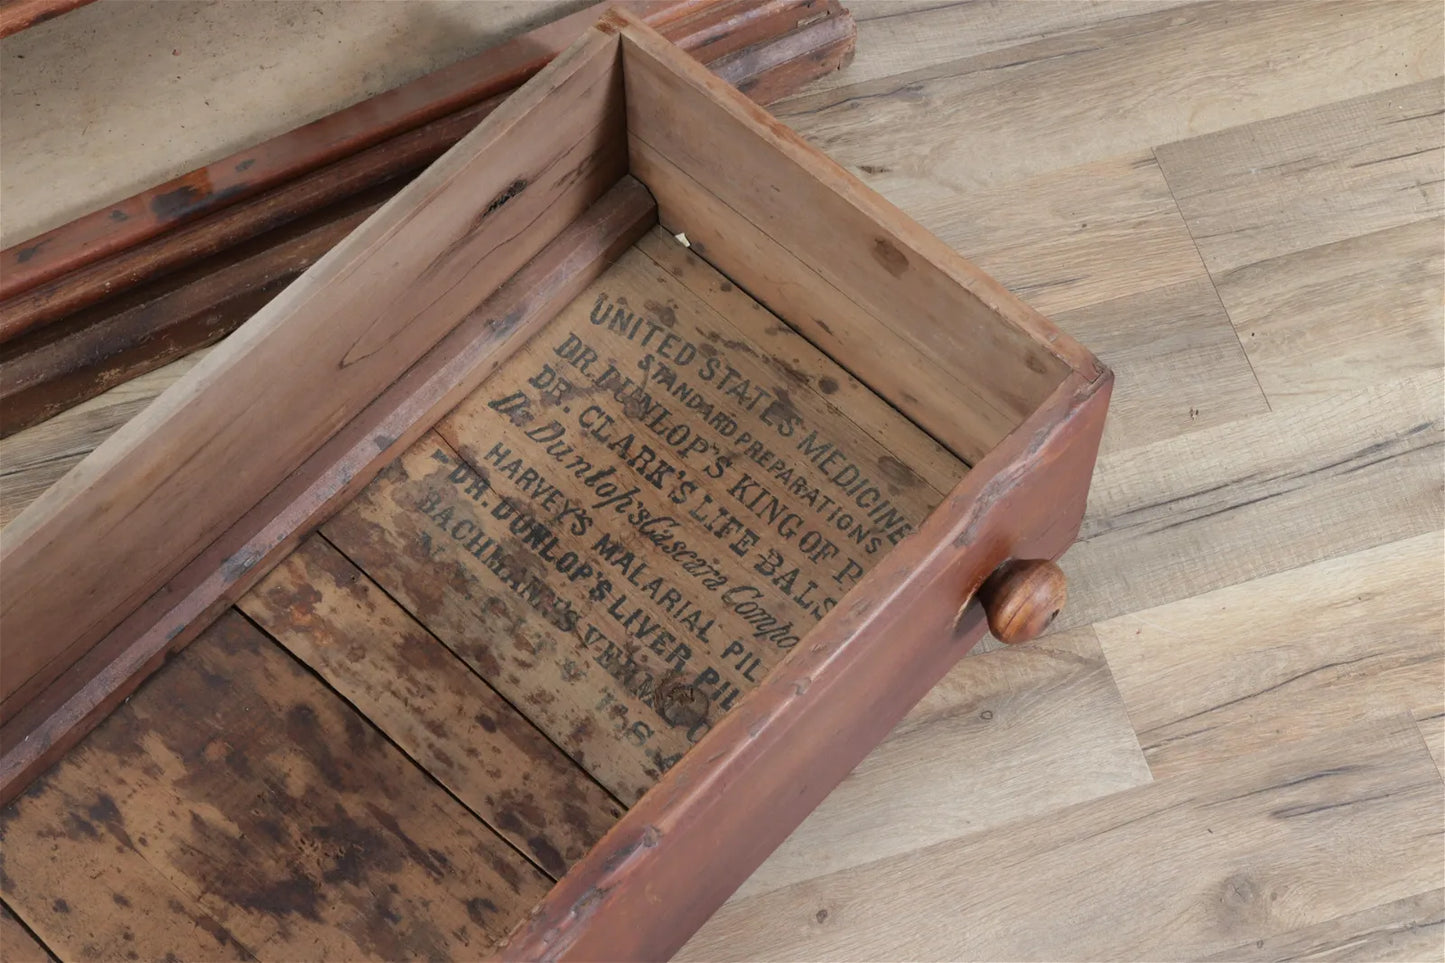 UNITED STATES MEDICINE
STANDARD PREPARATIONS
DR. DUNLOP'S KING OF P
DR. CLARK'S LIFE BALS
De Dunlop's Cascara Compo
HARVEY'S MALARIAL PIL
DR. DUNLOP'S LIVER PIL
BACHMANN'S VERM
U.S.A